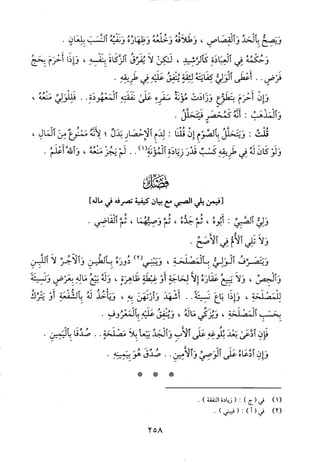 وَيَصِحُّ بِالْحَدِّ وَالْقِصَاصِ ، وَطَلَاقُهُ وَخُلْعُهُ وَظِهَارُهُ وَنَفْيُهُ النَّسَبَ بِلِعَانٍ .
وَحُكْمُهُ فِي الْعِبَادَةِ كَالرَّشِيدِ ، لَكِنْ لَا يُفَرِّقُ الزَّكَاةَ بِنَفْسِهِ ، وَإِذَا أَحْرَمَ بِحَجِّ
فَرْضٍ . . أَعْطَى الْوَلِيُّ كِفَايَتَهُ لِثِقَةٍ يُنْفِقُ عَلَيْهِ فِي طَرِيقِهِ .
وَإِنْ أَحْرَمَ بِتَطَوُّعٍ وَزَادَتْ مُؤْنَةُ سَفَرِهِ عَلَى نَفَقَتِهِ الْمَعْهُودَةِ . . فَلِلْوَلِيِّ مَنْعُهُ ،
وَالْمَذْهَبُ : أَنَّهُ كَمُحْصَرٍ فَيَتَحَلَّلُ .
قُلْتُ : وَيَتَحَلَّلُ بِالصَّوْمِ إِنْ قُلْنَا : لِدَمِ الْإِحْصَارِ بَدَلٌ ؛ لِأَنَّهُ مَمْنُوعٌ مِنَ الْمَالِ ،
وَلَوْ كَانَ لَهُ فِي طَرِيقِهِ كَسْبٌ قَدْرَ زِيَادَةِ الْمُؤْنَةِ(١) . . لَمْ يَجُزْ مَنْعُهُ ، وَاللهُ أَعْلَمُ .
فَصْلٌ
[فيمن يلي الصبي مع بيان كيفية تصرفه في ماله]
وَلِيُّ الصَّبِيِّ : أَبُوهُ ، ثُمَّ جَدُّهُ ، ثُمَّ وَصِيُّهُمَا ، ثُمَّ الْقَاضِي .
وَلَا تَلِي الْأُمُّ فِي الْأَصَحِّ .
وَيَتَصَرَّفُ الْوَلِيُّ بِالْمَصْلَحَةِ ، وَيَبْنِي(٢) دُورَهُ بِالطِّينِ وَالْآجُرِّ لَا اللَّبِنِ
وَالْجِصِّ ، وَلَا يَبِيعُ عَقَارَهُ إِلَّا لِحَاجَةٍ أَوْ غِبْطَةٍ ظَاهِرَةٍ ، وَلَهُ بَيْعُ مَالِهِ بِعَرْضٍ وَنَسِيئَةٍ
لِلْمَصْلَحَةِ ، وَإِذَا بَاعَ نَسِيئَةً . . أَشْهَدَ وَارْتَهَنَ بِهِ ، وَيَأْخُذُ لَهُ بِالشُّفْعَةِ أَوْ يَتْرُكُ
بِحَسَبِ الْمَصْلَحَةِ ، وَيُزَكِّي مَالَهُ ، وَيُنْفِقُ عَلَيْهِ بِالْمَعْرُوفِ .
فَإِنِ ادَّعَى بَعْدَ بُلُوغِهِ عَلَى الْأَبِ وَالْجَدِّ بَيْعاً بِلَا مَصْلَحَةٍ . . صُدِّقَا بِالْيَمِينِ .
وَإِنِ ادَّعَاهُ عَلَى الْوَصِيِّ وَالْأَمِينِ . . صُدِّقَ هُوَ بِيَمِينِهِ .
* * *
(١) في (ج) : ( زيادة النفقة ) .
(٢) في (أ) : ( فيبني ) .
٢٥٨